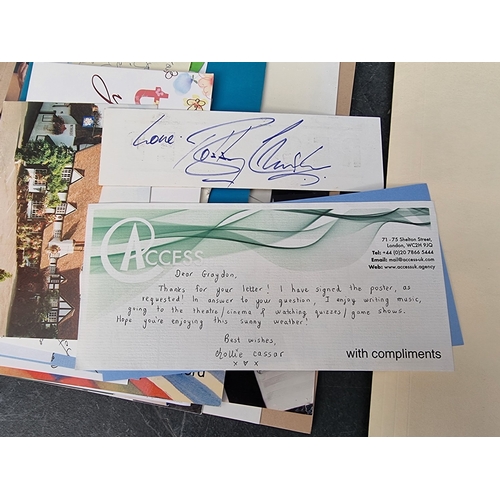 Love
ACCESS
71 - 75 Shelton Street,
London, WC2H 9JQ
Tel: +44 (0)20 7866 5444
Email: mail@accessuk.com
Web: www.accessuk.agency
Dear Graydon,
Thanks for your letter! I have signed the poster, as
requested! In answer to your question, I enjoy writing music,
going to the theatre/cinema & watching quizzes/game shows.
Hope you're enjoying this sunny weather!
Best wishes,
Hollie Cassar
x A x
with compliments